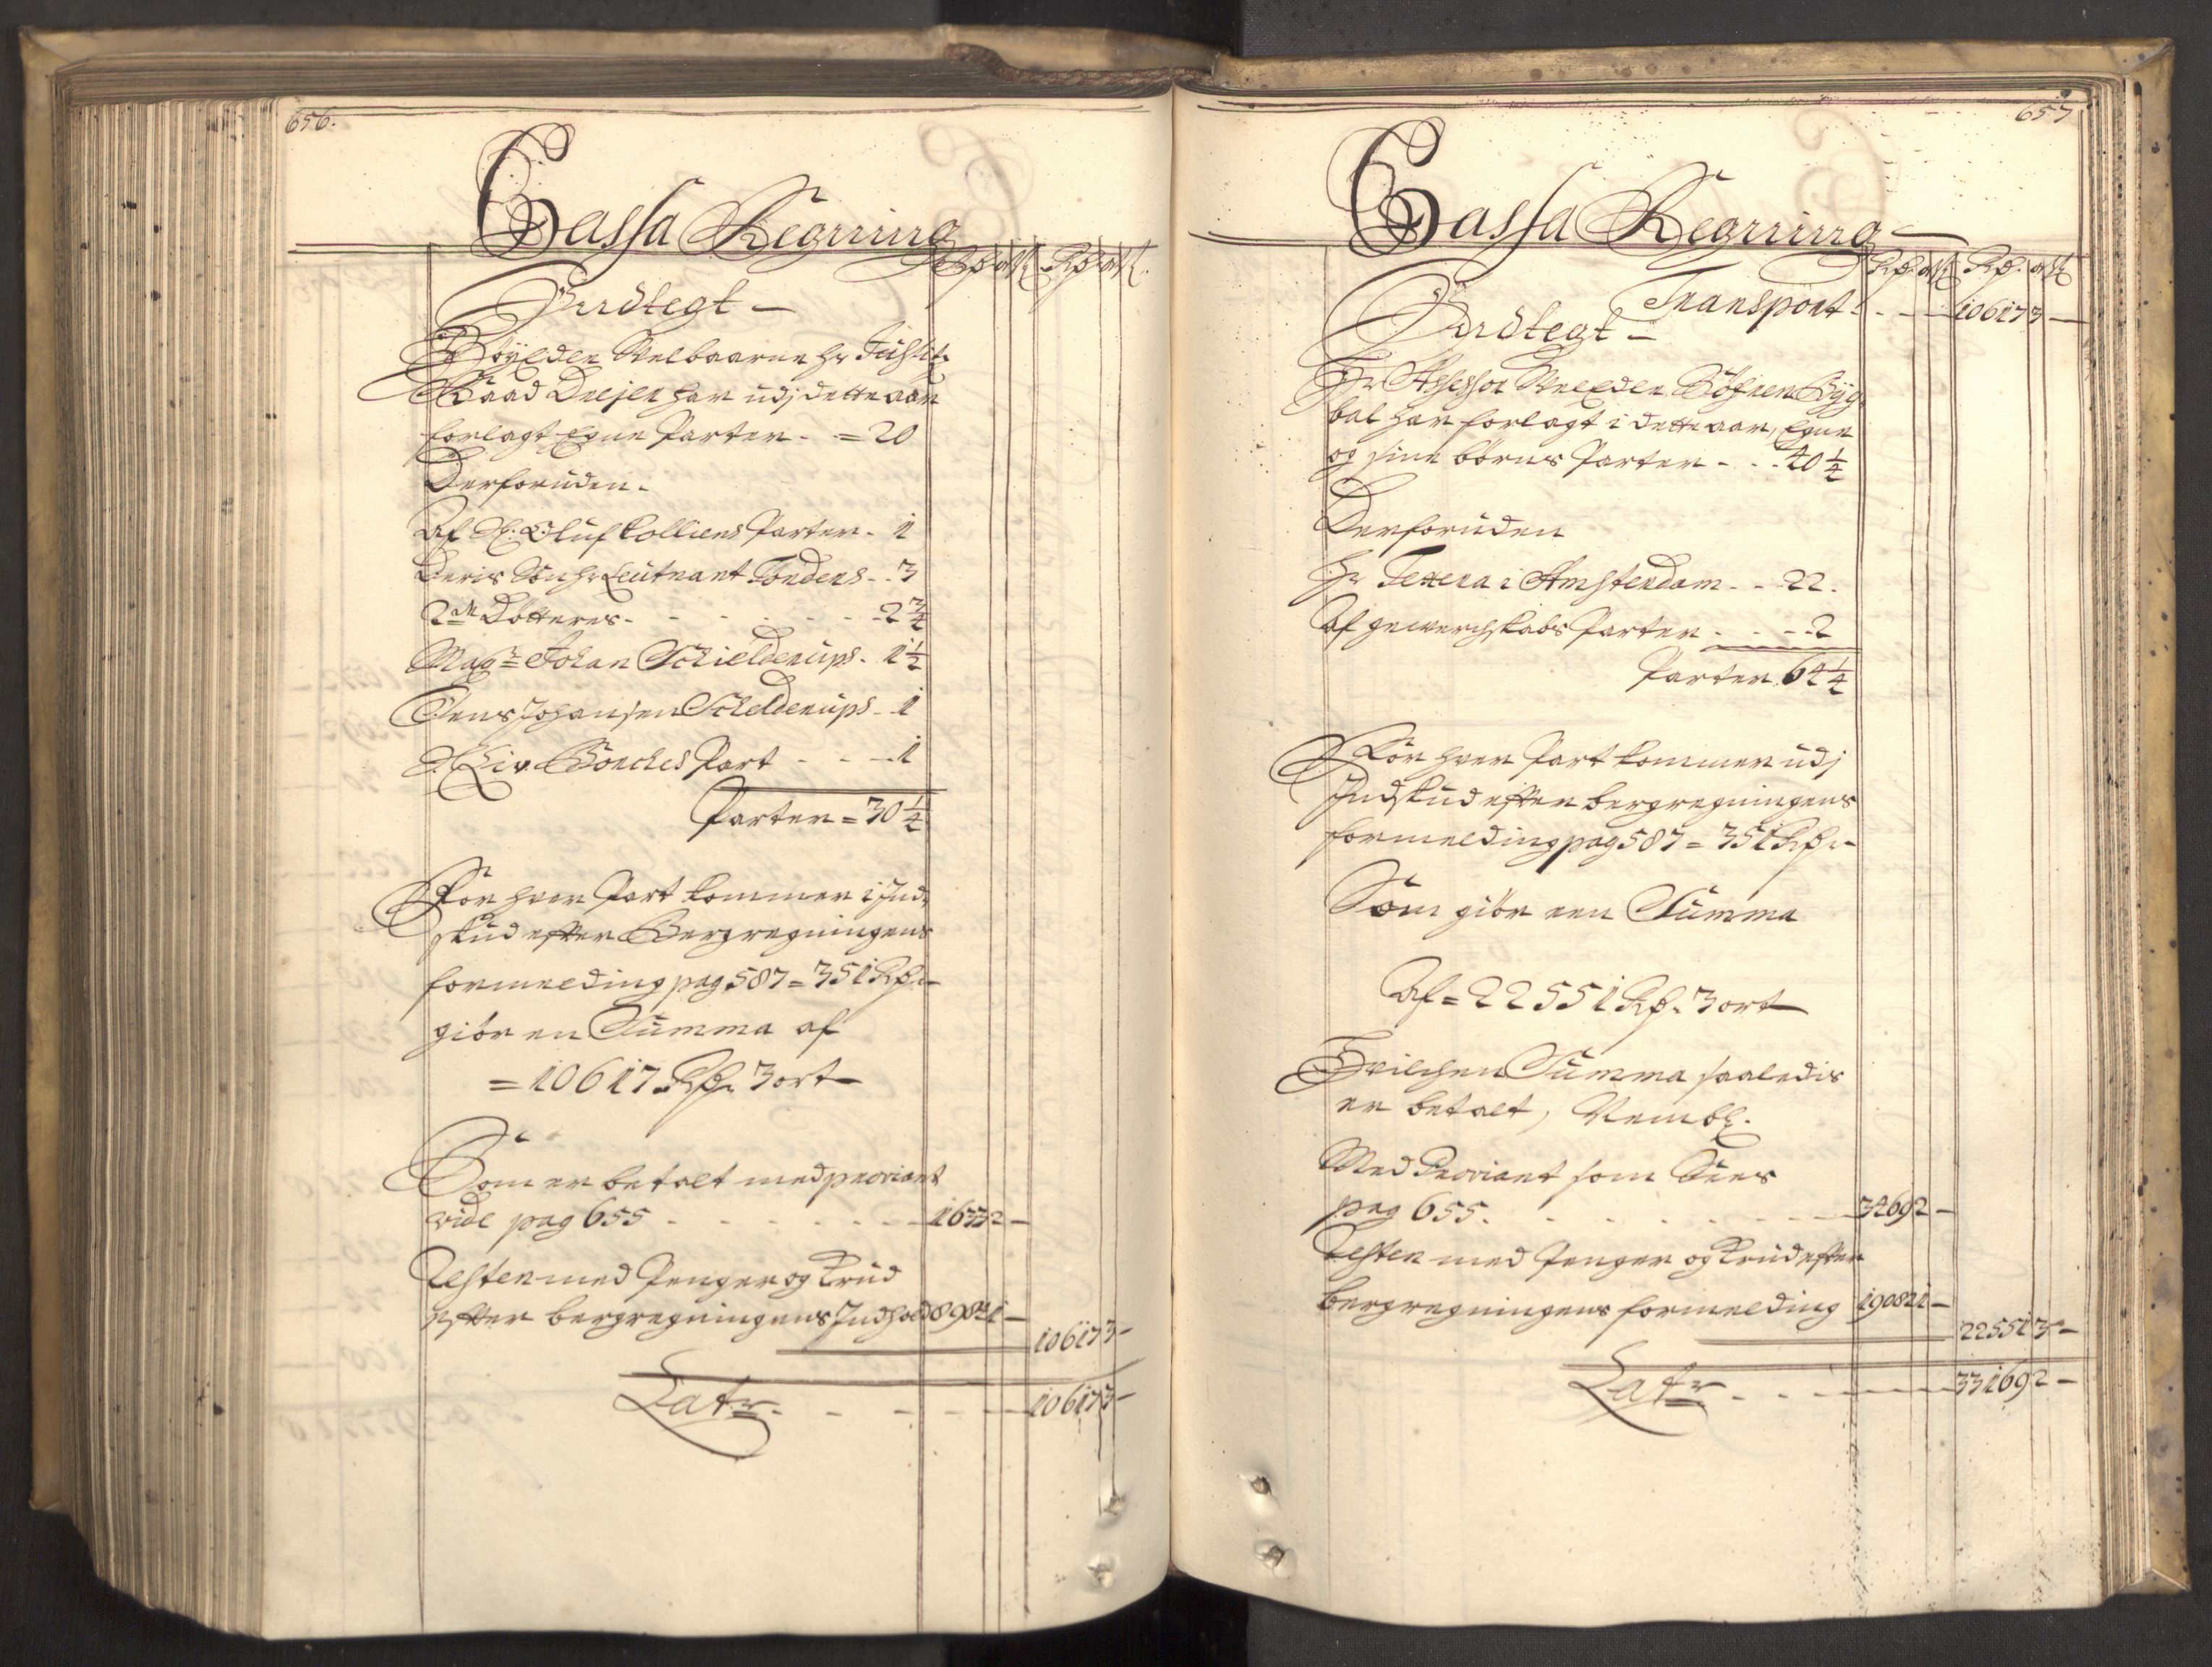 656.
Cassa Regning
Rdr ort Rdr ort
Indtegt
Höyedle Velbaarne Hr Justitz
Raad Drejer har udj dette aar
forlagt Egne Parter - = 20
Derforuden -
Af Sl. Oluf Colliens Parter - 1
Deris Sön hr Leutnant Tönders - - 3
2de Dötteres - - - - - - - 2 3/4
Magr Johan Schielderups - 1 1/2
Jens Johansen Schelderups - 1
Part - - - 1
Parter = 30 1/4
For hver Part kommer i Ind-
skud efter Bergregningens
formelding pag 587 = 351 Rdr
giör en Summa af
= 10617 Rdr 3 ort
Som er betalt med proviant
vide pag 655 - - - - - - - 1633 2 -
Resten med Penger og Krud
efter bergregningens Indhold 8984 1 -
10617 3 -
Latr - - - - - 10617 3 -
657
Cassa Regning
Rdr ort Rdr ort
Transport - - - 10617 3 -
Indtegt
Hr Assessor VelEdle Söfren Byg-
bal har forlagt i dette aar, Egne
og sine börns Parter - - - 40 1/4
Derforuden
Hr Texera i Amsterdam - - 22.
Af gewerchskabs Parter - - - 2
Parter 64 1/4
For hver Part kommer udj
Indskud efter bergregningens
formelding pag 587 = 351 Rdr
Som giör een Summa
Af = 22551 Rdr 3 ort
Hvilchen Summa saaledis
er betalt, Nembl.
Med Proviant som Sees
pag 655. - - - - - - - 3469 2 -
Resten med Penger og Krud efter
bergregningens formelding 19082 1 -
22551 3 -
Latr - - - - 33169 2 -